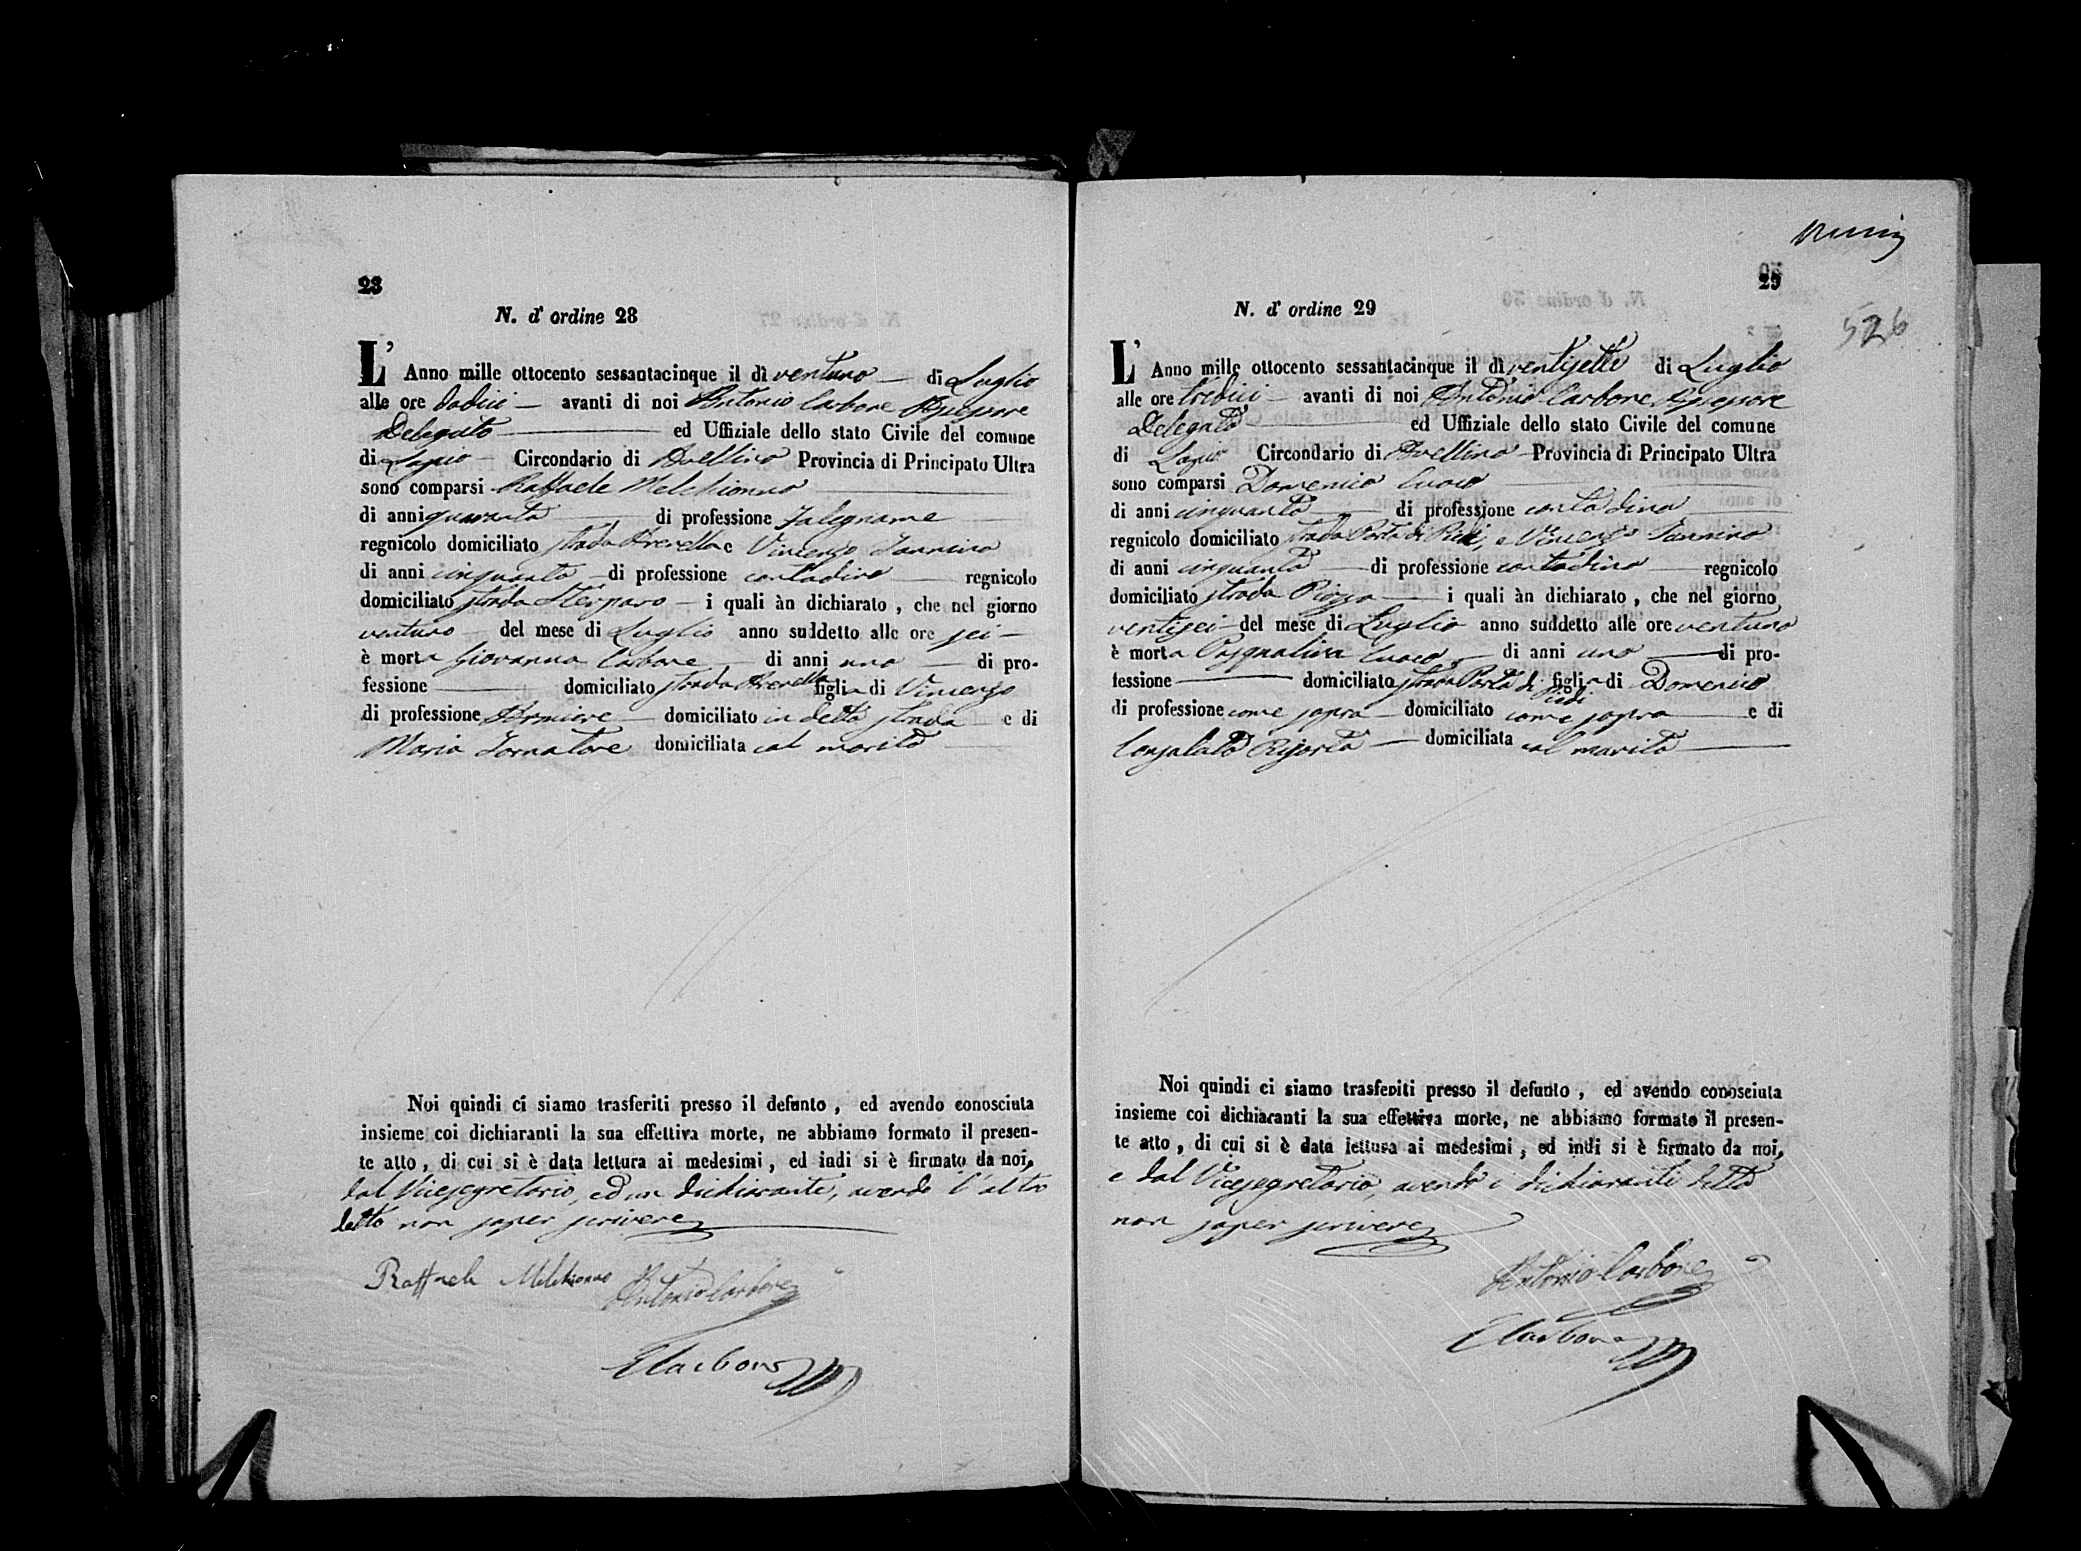 28
N. d' ordine 28
L' Anno mille ottocento sessantacinque il dì ventuno di Luglio
alle ore dodici avanti di noi Antonio Carbone Assessore
Delegato ed Uffiziale dello stato Civile del comune
di Lapio Circondario di Avellino Provincia di Principato Ultra
sono comparsi Raffaele Melchionno
di anni quaranta di professione Falegname
regnicolo domiciliato strada Arenella e Vincenzo Iannino
di anni cinquanta di professione contadino regnicolo
domiciliato strada Sterparo i quali àn dichiarato , che nel giorno
ventuno del mese di Luglio anno suddetto alle ore sei
è morta Giovanna Carbone di anni uno di pro-
fessione domiciliato strada Arenella figlia di Vincenzo
di professione domiciliato in detta strada e di
Maria Tornatore domiciliata col marito
Noi quindi ci siamo trasferiti presso il defunto , ed avendo conosciuta
insieme coi dichiaranti la sua effettiva morte, ne abbiamo formato il presen-
te atto , di cui si è data lettura ai medesimi , ed indi si è firmato da noi,
dal Vicesegretario, ed un dichiarante, avendo l'altro
detto non saper scrivere
Raffaele Melchionno Antonio Carbone
Carbone
29
526
N. d' ordine 29
L' Anno mille ottocento sessantacinque il dì ventisette di Luglio
alle ore tredici avanti di noi Antonio Carbone Assessore
Delegato ed Uffiziale dello stato Civile del comune
di Lapio Circondario di Avellino Provincia di Principato Ultra
sono comparsi Domenico Cuoco
di anni cinquanta di professione contadino
regnicolo domiciliato strada Porta di e Vincenzo Iannino
di anni cinquanta di professione contadino regnicolo
domiciliato strada Piazza i quali àn dichiarato , che nel giorno
ventisei del mese di Luglio anno suddetto alle ore ventuno
è morta Pasqualina Cuoco di anni uno di pro-
fessione domiciliato strada Porta di figlia di Domenico
di professione come sopra domiciliato come sopra e di
domiciliata col marito
Noi quindi ci siamo trasferiti presso il defunto , ed avendo conosciuta
insieme coi dichiaranti la sua effettiva morte, ne abbiamo formato il presen-
te atto , di cui si è data lettura ai medesimi , ed indi si è firmato da noi,
e dal Vicesegretario, avendo i dichiaranti detto
non saper scrivere
Antonio Carbone
Carbone